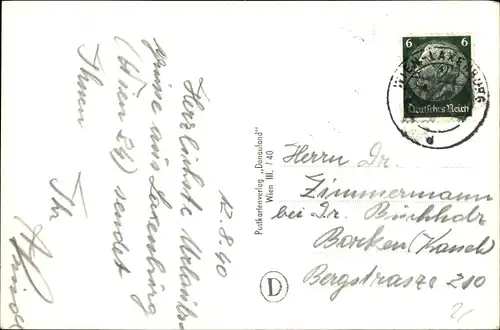 12.8.40
Herzlichste Urlaubs-
grüsse aus Laxenburg
(Wien 24) sendet
Ihnen
Ihr
Postkartenverlag „Donauland"
Wien III. / 40
D
6 6
Deutsches Reich
WIEN-LAXENBURG
d
Herrn Dr.
Zimmermann
bei Dr. Buchholz
Borken/Kassel
Bergstrasze 210